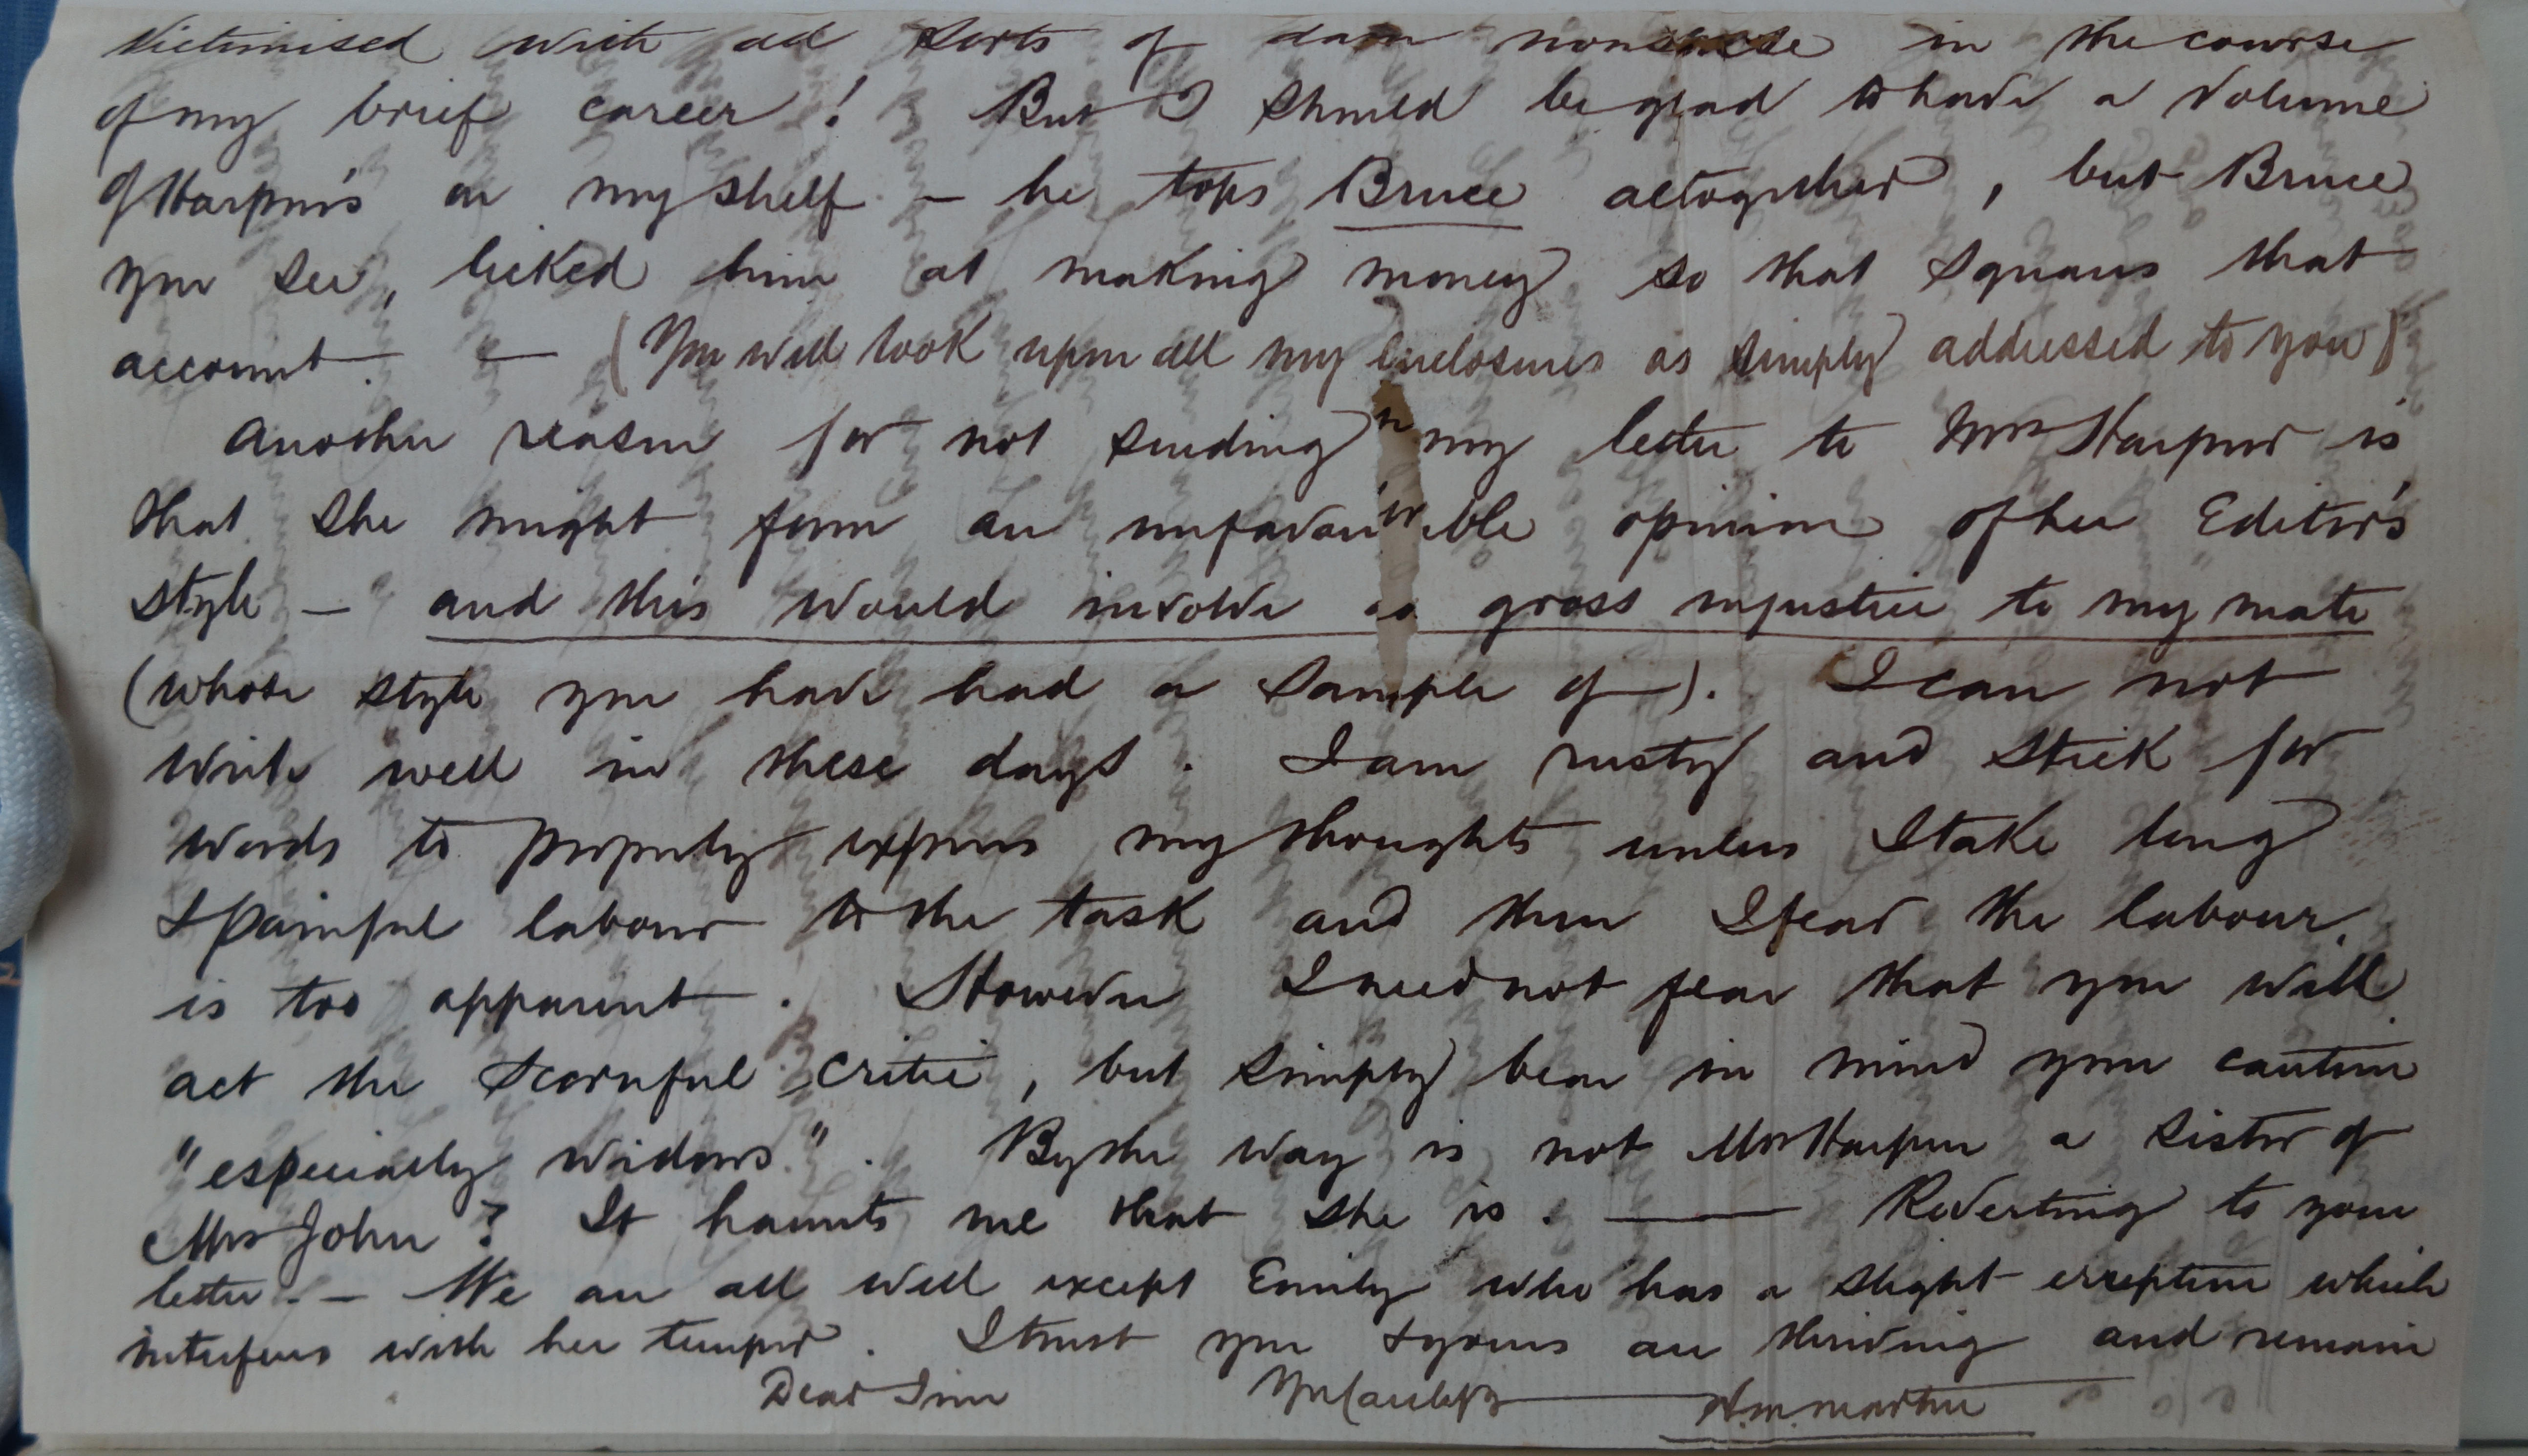 Victimised with all sorts of dam nonsense in the course
of my brief career! But I should be glad to have a Volume
of Harpur's on my shelf – he tops Bruce altogether, but Bruce
you see, licked him at making money so that squares that
account. — (You will look upon all my enclosures as simply addressed to you)
Another reason for not sending my letter to Mrs Harpur is
that she might form an unfavourable opinion of her Editor's
style – and this would involve a gross injustice to my mate
(whose style you have had a sample of). I can not
write well in these days. I am rusty and stick for
words to properly express my thoughts unless I take long
& painful labour to the task and then I fear the labour
is too apparent. However I need not fear that you will
act the scornful critic, but simply bear in mind your caution
"especially widows". By the way is not Mrs Harpur a sister of
Mrs John? It haunts me that she is. — Reverting to your
letter. – We are all well except Emily who has a slight erruption which
interferes with her temper. I trust you & yours are thriving and remain
Dear Jim W.M. Martin